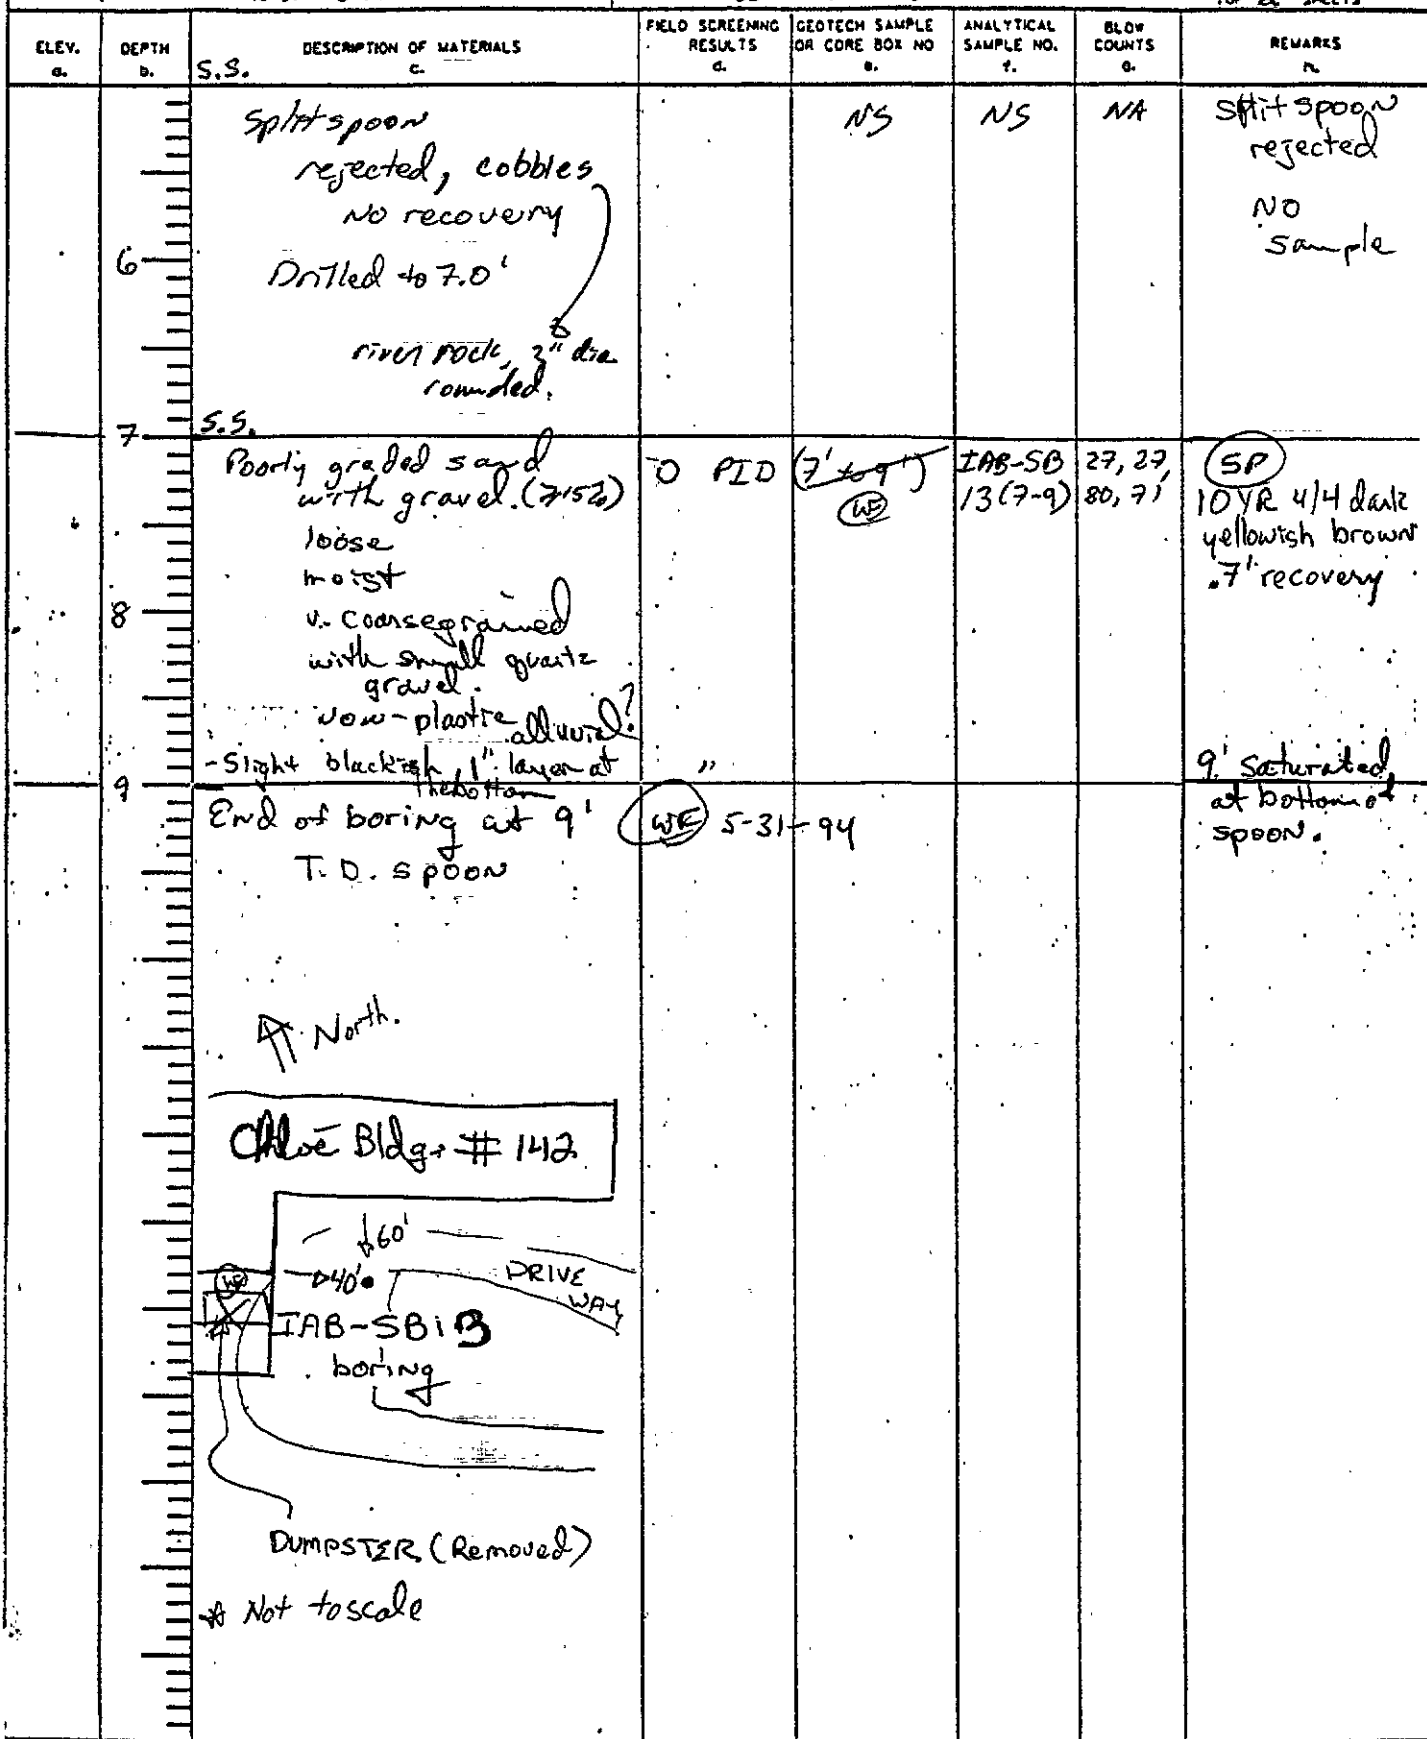 ELEV.
a.
DEPTH
b.
DESCRIPTION OF MATERIALS
c.
S.S.
FIELD SCREENING
RESULTS
d.
GEOTECH SAMPLE
OR CORE BOX NO
e.
ANALYTICAL
SAMPLE NO.
f.
BLOW
COUNTS
g.
REMARKS
h.
Split spoon
rejected, cobbles
No recovery
Drilled to 7.0'
river rock, 3" dia
rounded.
NS
NS
NA
Split spoon
rejected
NO
sample
6
7
S.S.
Poorly graded sand
with gravel. (>15%)
loose
moist
v. coarse grained
with small quartz
gravel.
non-plastic alluvial?
- Slight blackish, 1" layer at
the bottom
0 PID
(7' to 9')
WE
IAB-SB
13(7-9)
27, 27,
80, 71
SP
10YR 4/4 dark
yellowish brown
.7' recovery
8
"
9' saturated,
at bottom of
spoon.
9
End of boring at 9'
WE 5-31-94
T.D. spoon
North.
Bldg. # 142
60'
40'
DRIVE
WAY
WE
IAB-SB13
boring
DUMPSTER (Removed)
* Not to scale